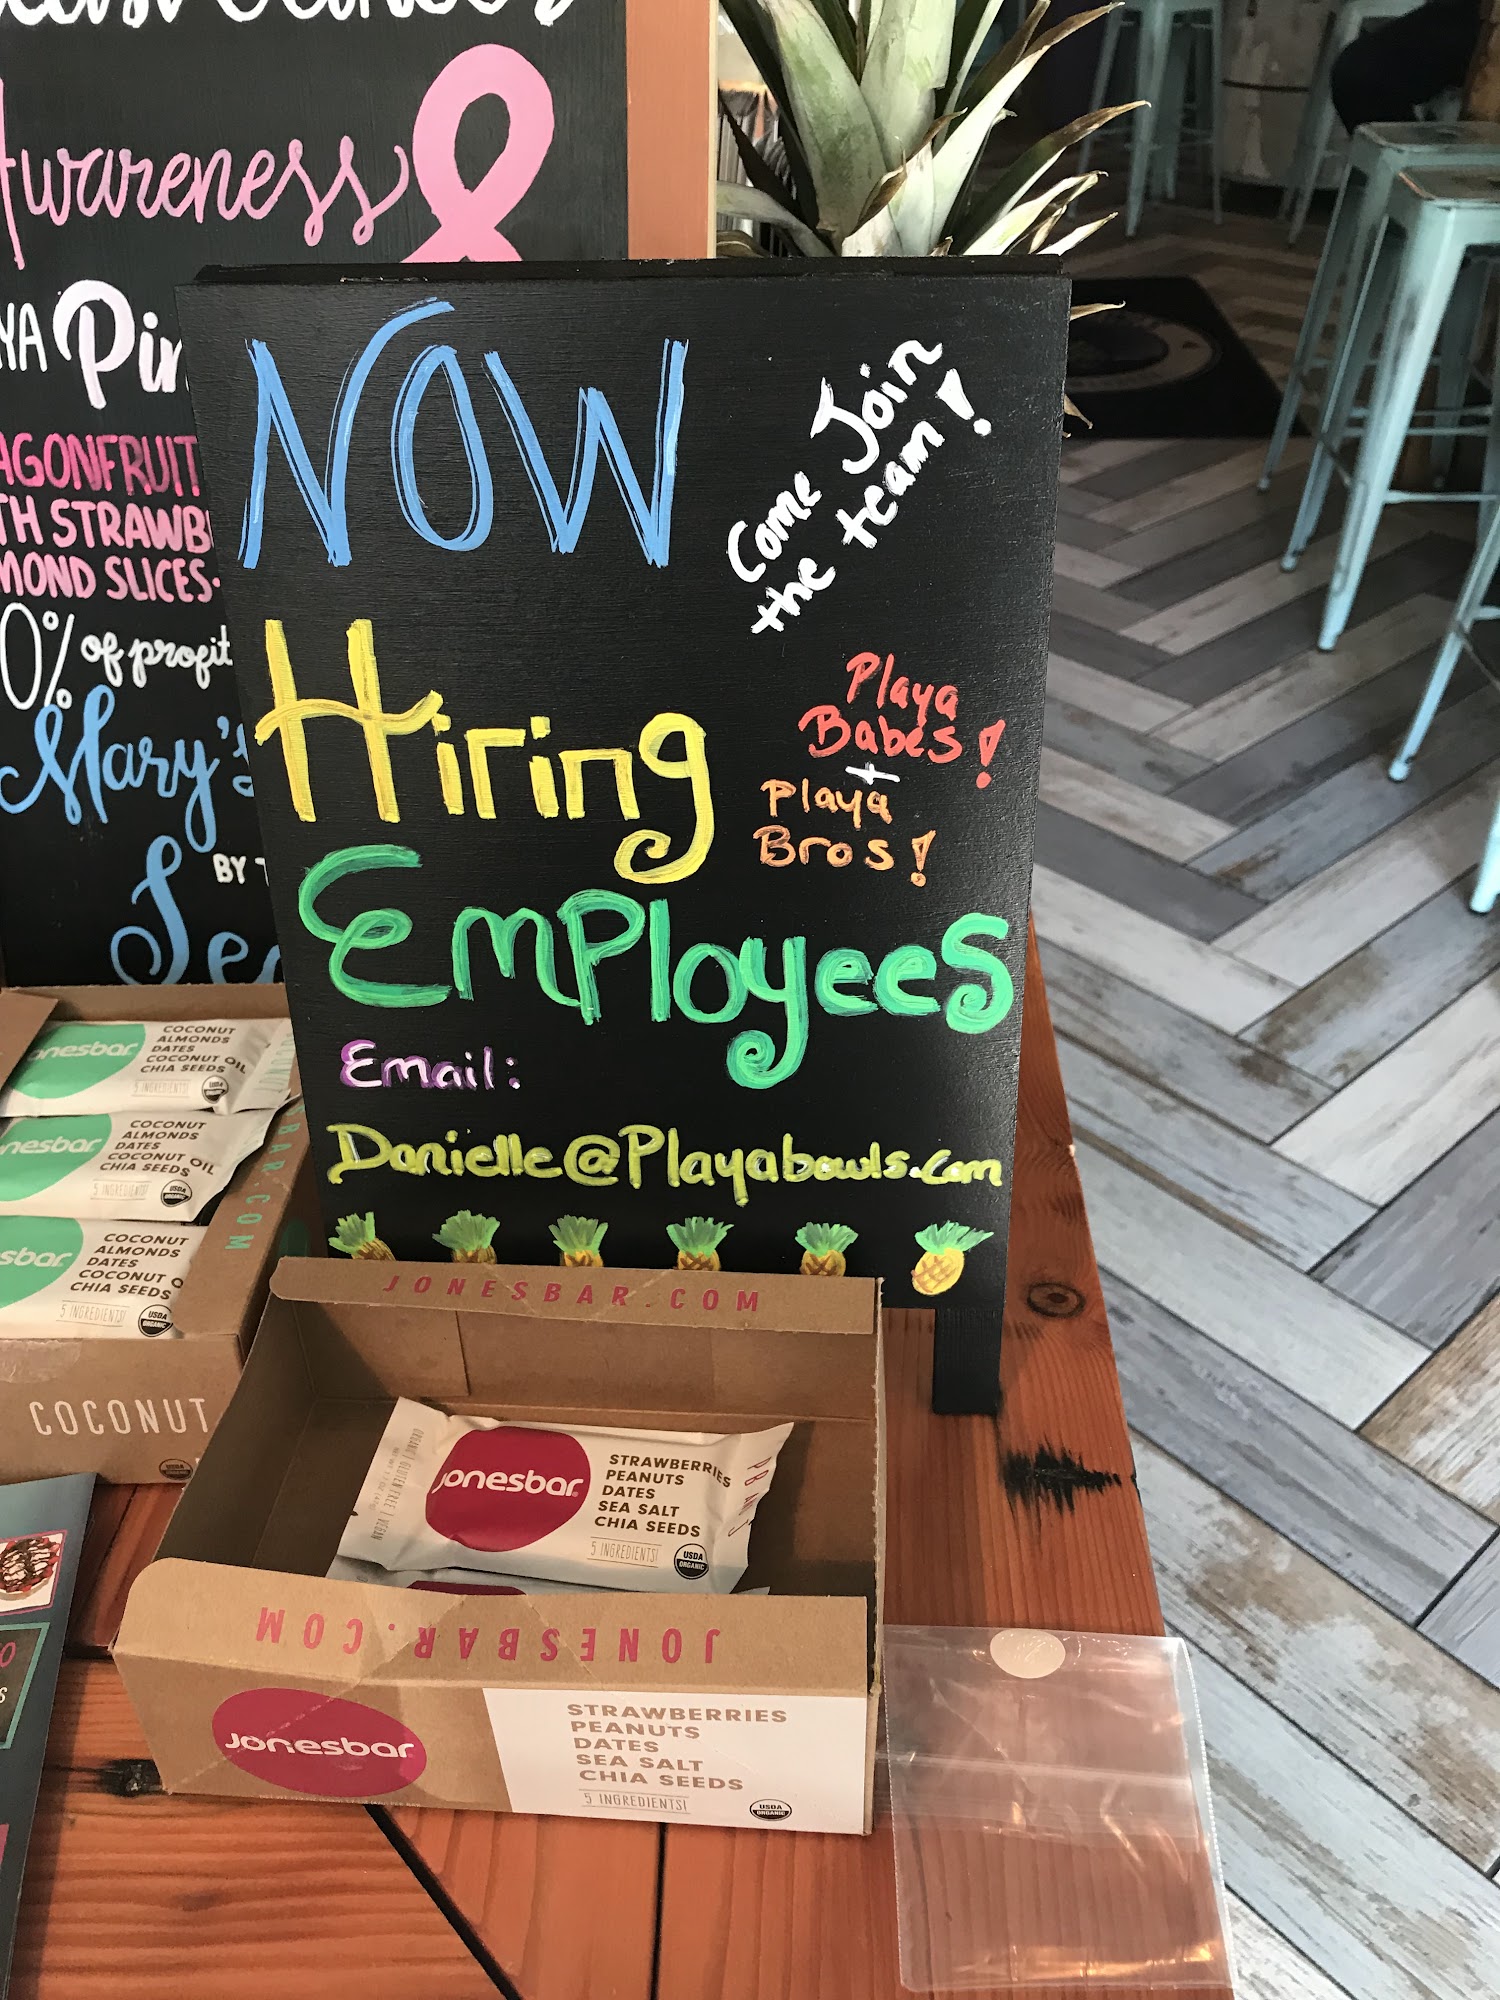 Awareness
YA Pin
AGONFRUIT
TH STRAWB
MOND SLICES.
0% of profit
Mary's
BY T
NOW
Hiring
Employees
Come Join
the team!
Playa
Babes!
+
Playa
Bros!
Email:
Danielle@Playabowls.com
onesbar
COCONUT
ALMONDS
DATES
COCONUT OIL
CHIA SEEDS
5 INGREDIENTS!
USDA
ORGANIC
nesbar
COCONUT
ALMONDS
DATES
COCONUT OIL
CHIA SEEDS
5 INGREDIENTS!
USDA
ORGANIC
sbar
COCONUT
ALMONDS
DATES
COCONUT O
CHIA SEEDS
5 INGREDIENTS!
USDA
ORGANIC
COCONUT
SBAR.COM
JONESBAR.COM
Jonesbar
STRAWBERRIES
PEANUTS
DATES
SEA SALT
CHIA SEEDS
5 INGREDIENTS!
USDA
ORGANIC
ORGANIC | GLUTEN FREE | VEGAN
PB AND J
JONESBAR.COM
Jonesbar
STRAWBERRIES
PEANUTS
DATES
SEA SALT
CHIA SEEDS
5 INGREDIENTS!
USDA
ORGANIC